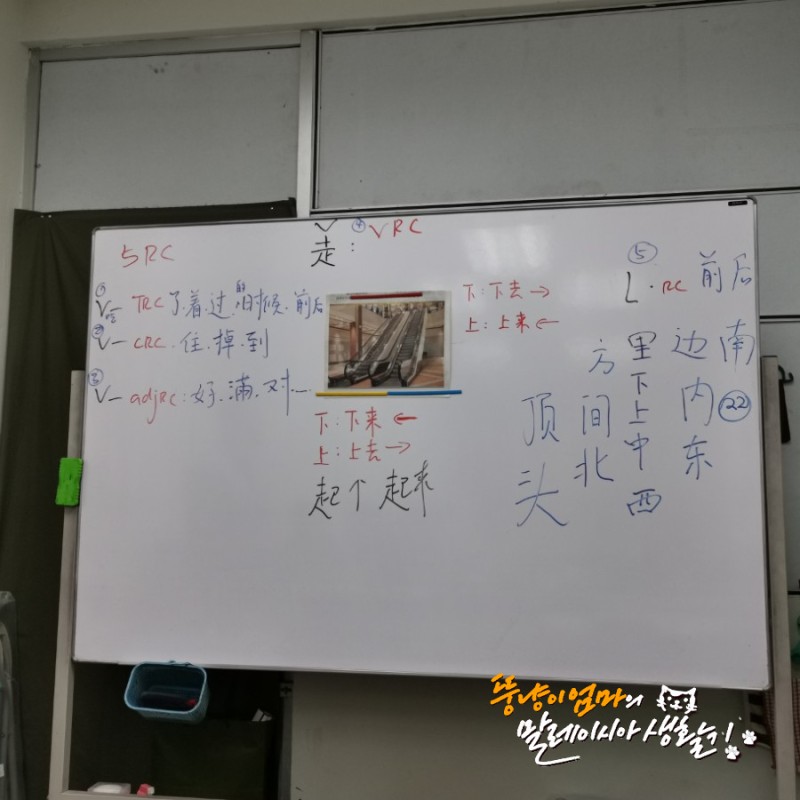 5RC
走： ④ VRC
① V一 TRC 了.着.过.的时候.前后
② V一 CRC.住.掉.到
③ V一 adjRC：好.满.对...
下：下去→
上：上来←
下：下来←
上：上去→
起个 起来
⑤
L.RC 前后
方里边南
顶间下上内㉒
头北中西东
뚱냥이엄마의
말레이시아 생활일기!